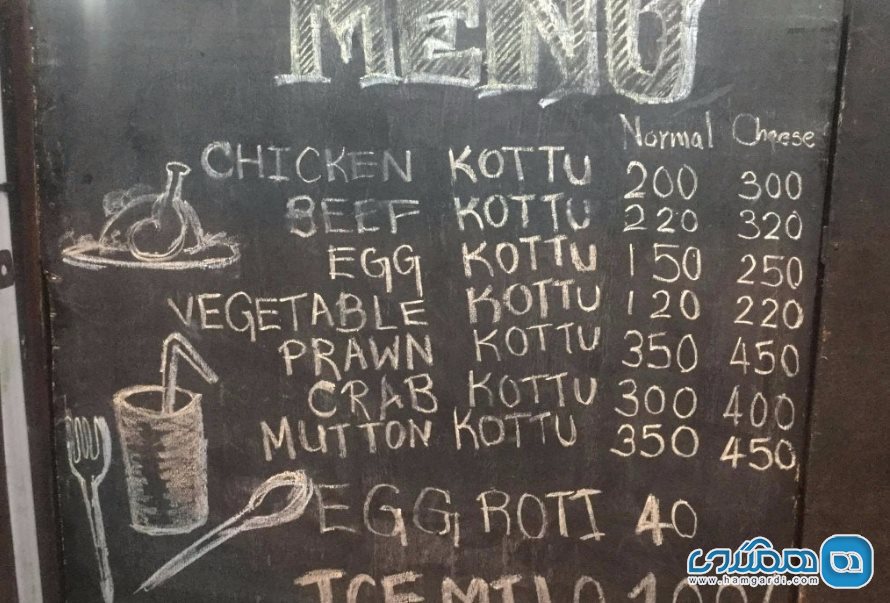 MENU
Normal Cheese
CHICKEN KOTTU 200 300
BEEF KOTTU 220 320
EGG KOTTU 150 250
VEGETABLE KOTTU 120 220
PRAWN KOTTU 350 450
CRAB KOTTU 300 400
MUTTON KOTTU 350 450
EGG ROTI 40
ICE MILO 100/
همگردی
www.hamgardi.com